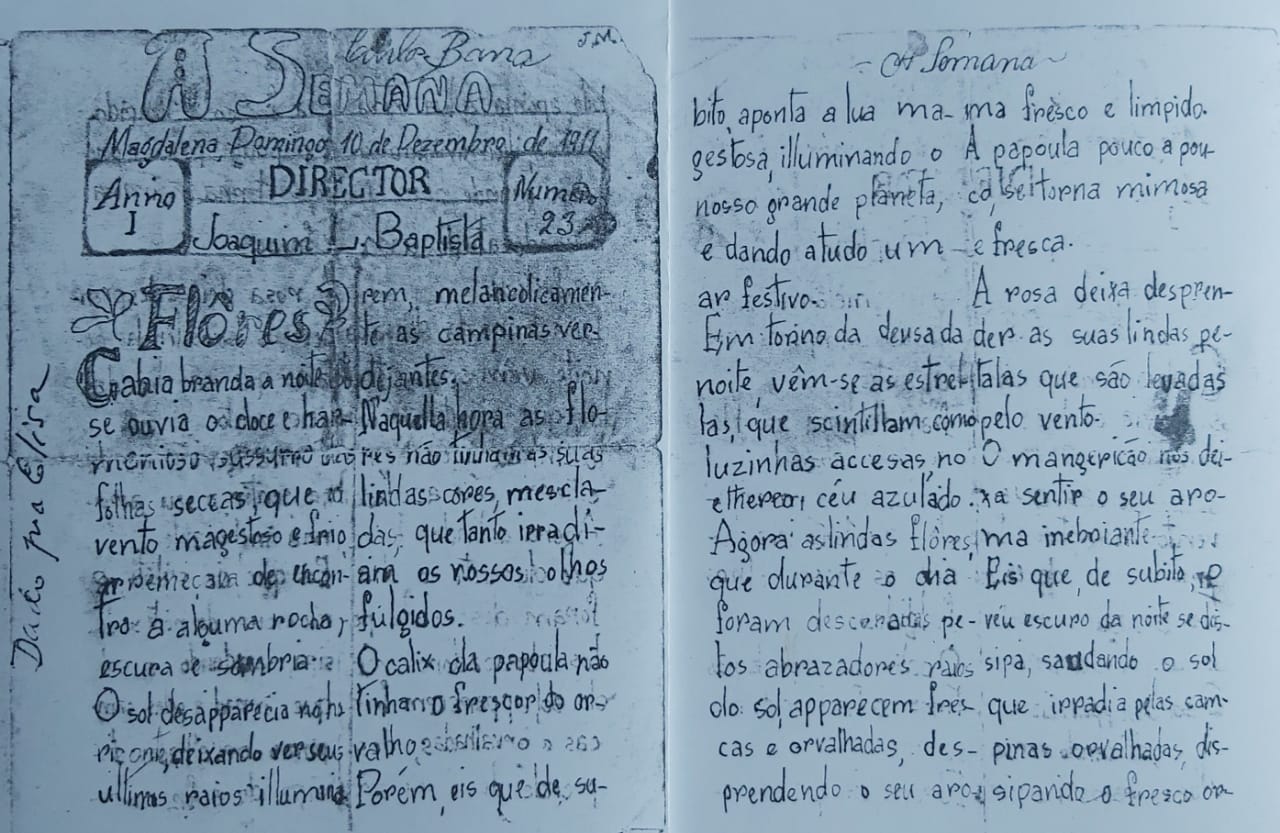 J.M.
A SEMANA
Magdalena, Domingo 10 de Dezembro de 1911
Anno
I
DIRECTOR
Joaquim L. Baptista
Numero
23
Flôres
Cahia branda a noite
se ouvia o doce e har-
monioso sussurro das
folhas seccas, que o
vento magestoso e frio
arremeçava de encon-
tro a alguma rocha,
escura e sombria.
O sol desapparecia no ho
risonte, deixando ver seus
ultimos raios illumina
rem, melancolicamen-
te as campinas ver-
dejantes.
Naquella hora as flo-
res não tinham as suas
lindas cores, mescla-
das, que tanto irradi-
am os nossos olhos
fulgidos.
O calix da papoula não
tinha o frescor do or-
valho
Porém, eis que de su-
Dado pra Elisa
A Semana
bito, aponta a lua ma-
gestosa, illuminando o
nosso grande planeta,
e dando a tudo um
ar festivo.
Em torno da deusa da
noite, vêm-se as estrel-
las, que scintillam como
luzinhas accesas no
ethereo, céu azulado.
Agora as lindas flôres,
que durante o dia
foram descoradas pe-
los abrazadores raios
do sol, apparecem fres
cas e orvalhadas, des-
prendendo o seu aro-
ma fresco e limpido.
A papoula pouco a pou-
co, se torna mimosa
e fresca.
A rosa deixa despren-
der as suas lindas pe-
talas que são levadas
pelo vento.
O mangericão nos dei-
xa sentir o seu aro-
ma ineboiante
Eis que, de subito, o
véu escuro da noite se dis-
sipa, saudando o sol
que irradia pelas cam-
pinas orvalhadas, dis-
sipando o fresco or-